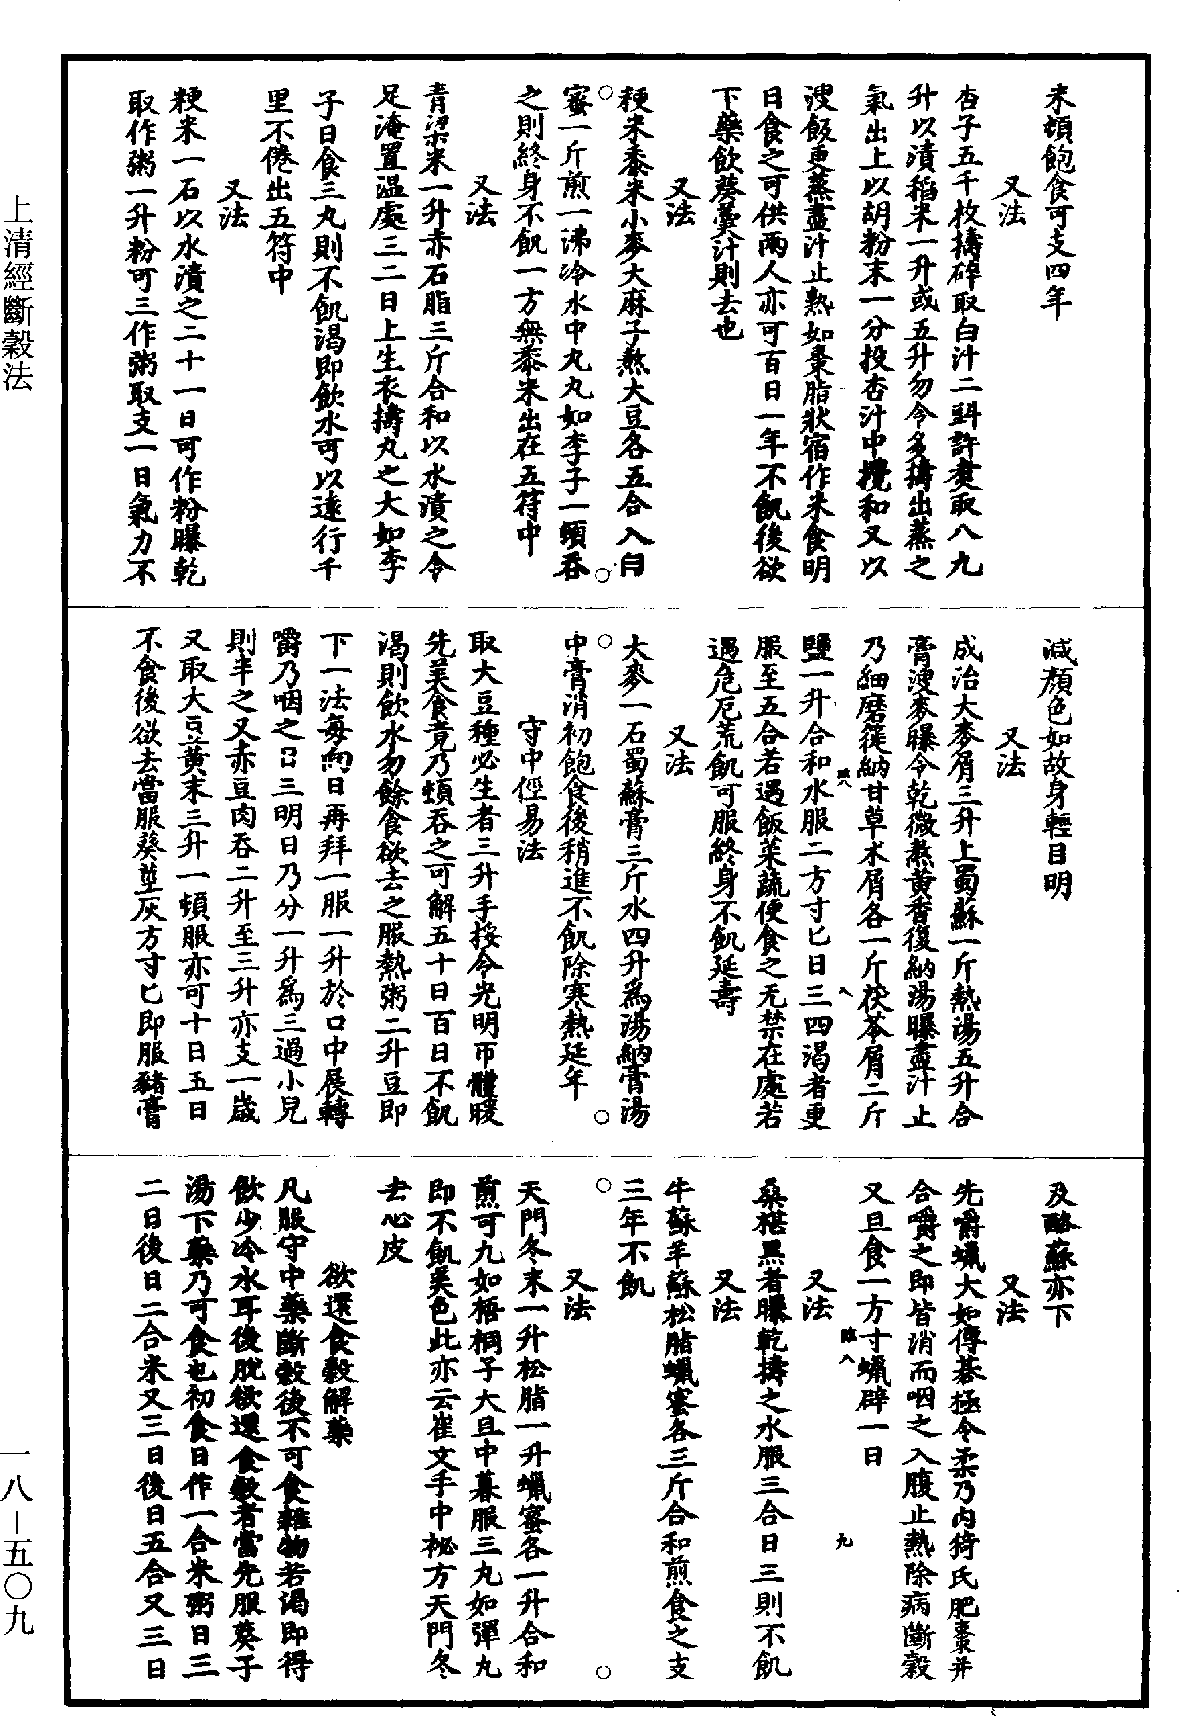 米頓飽食可支四年
又法
杏子五千枚擣碎取白汁二㪷許煑取八九
升以漬稻米一升或五升勿令多擣出蒸之
氣出上以胡粉末一分投杏汁中攪和又以
溲飯更蒸盡汁止熟如棗脂狀宿作米食明
日食之可供兩人亦可百日一年不飢後欲
下藥飲葵羹汁則去也
又法
粳米黍米小麥大麻子熬大豆各五合入白
蜜一斤煎一沸冷水中丸丸如李子一頓吞
之則終身不飢一方無黍米出在五符中
又法
青粱米一升赤石脂三斤合和以水漬之令
足淹置温處三二日上生衣擣丸之大如李
子日食三丸則不飢渴即飲水可以遠行千
里不倦出五符中
又法
粳米一石以水漬之二十一日可作粉曝乾
取作粥一升粉可三作粥取支一日氣力不
減顔色如故身輕目明
又法
成治大麥屑三升上蜀蘇一斤熱湯五升合
膏溲麥曝令乾微熬黄香復納湯曝盡汁止
乃細磨簁納甘草术屑各一斤茯苓屑二斤
鹽一升合和水服二方寸匕日三四渴者更
服至五合若遇飯菜蔬便食之无禁在處若
遇危厄荒飢可服終身不飢延壽
又法
大麥一石蜀蘇膏三斤水四升爲湯納膏湯
中膏消初飽食後稍進不飢除寒熱延年
守中徑易法
取大豆種必生者三升手挼令光明帀體暖
先美食竟乃頓吞之可解五十日百日不飢
渴則飲水勿餘食欲去之服熱粥二升豆即
下一法每向日再拜一服一升於口中展轉
嚼乃咽之日三明日乃分一升爲三過小兒
則半之又赤豆肉吞二升至三升亦支一歲
又取大豆黄末三升一頓服亦可十日五日
不食後欲去當服葵莖灰方寸匕即服豬膏
及酪蘇亦下
又法
先嚼蠟大如愽棊極令柔乃内猗氏肥棗并
合嚼之即皆消而咽之入腹止熱除病斷穀
又旦食一方寸蠟辟一日
又法
桑椹黑者曝乾擣之水服三合日三則不飢
又法
牛蘇羊蘇松脂蠟蜜各三斤合和煎食之支
三年不飢
又法
天門冬末一升松脂一升蠟蜜各一升合和
煎可丸如梧桐子大旦中暮服三丸如彈丸
即不飢美色此亦云崔文手中祕方天門冬
去心皮
欲還食穀解藥
凡服守中藥斷穀後不可食雜物若渴即得
飲少冷水耳後脱欲還食穀者當先服葵子
湯下藥乃可食也初食日作一合米粥日三
二日後日二合米又三日後日五合又三日
上清經斷穀法
一八—五〇九